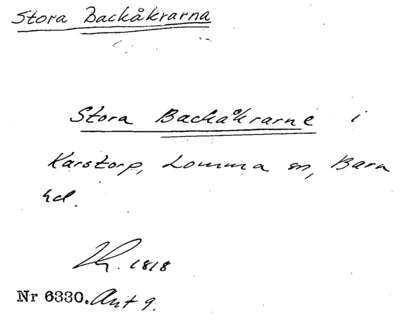 Stora Backåkrarna
Stora Backåkrarne i
Karstorp, Lomma sn, Bara
hd.
1818
Nr 6330. Akt 9.